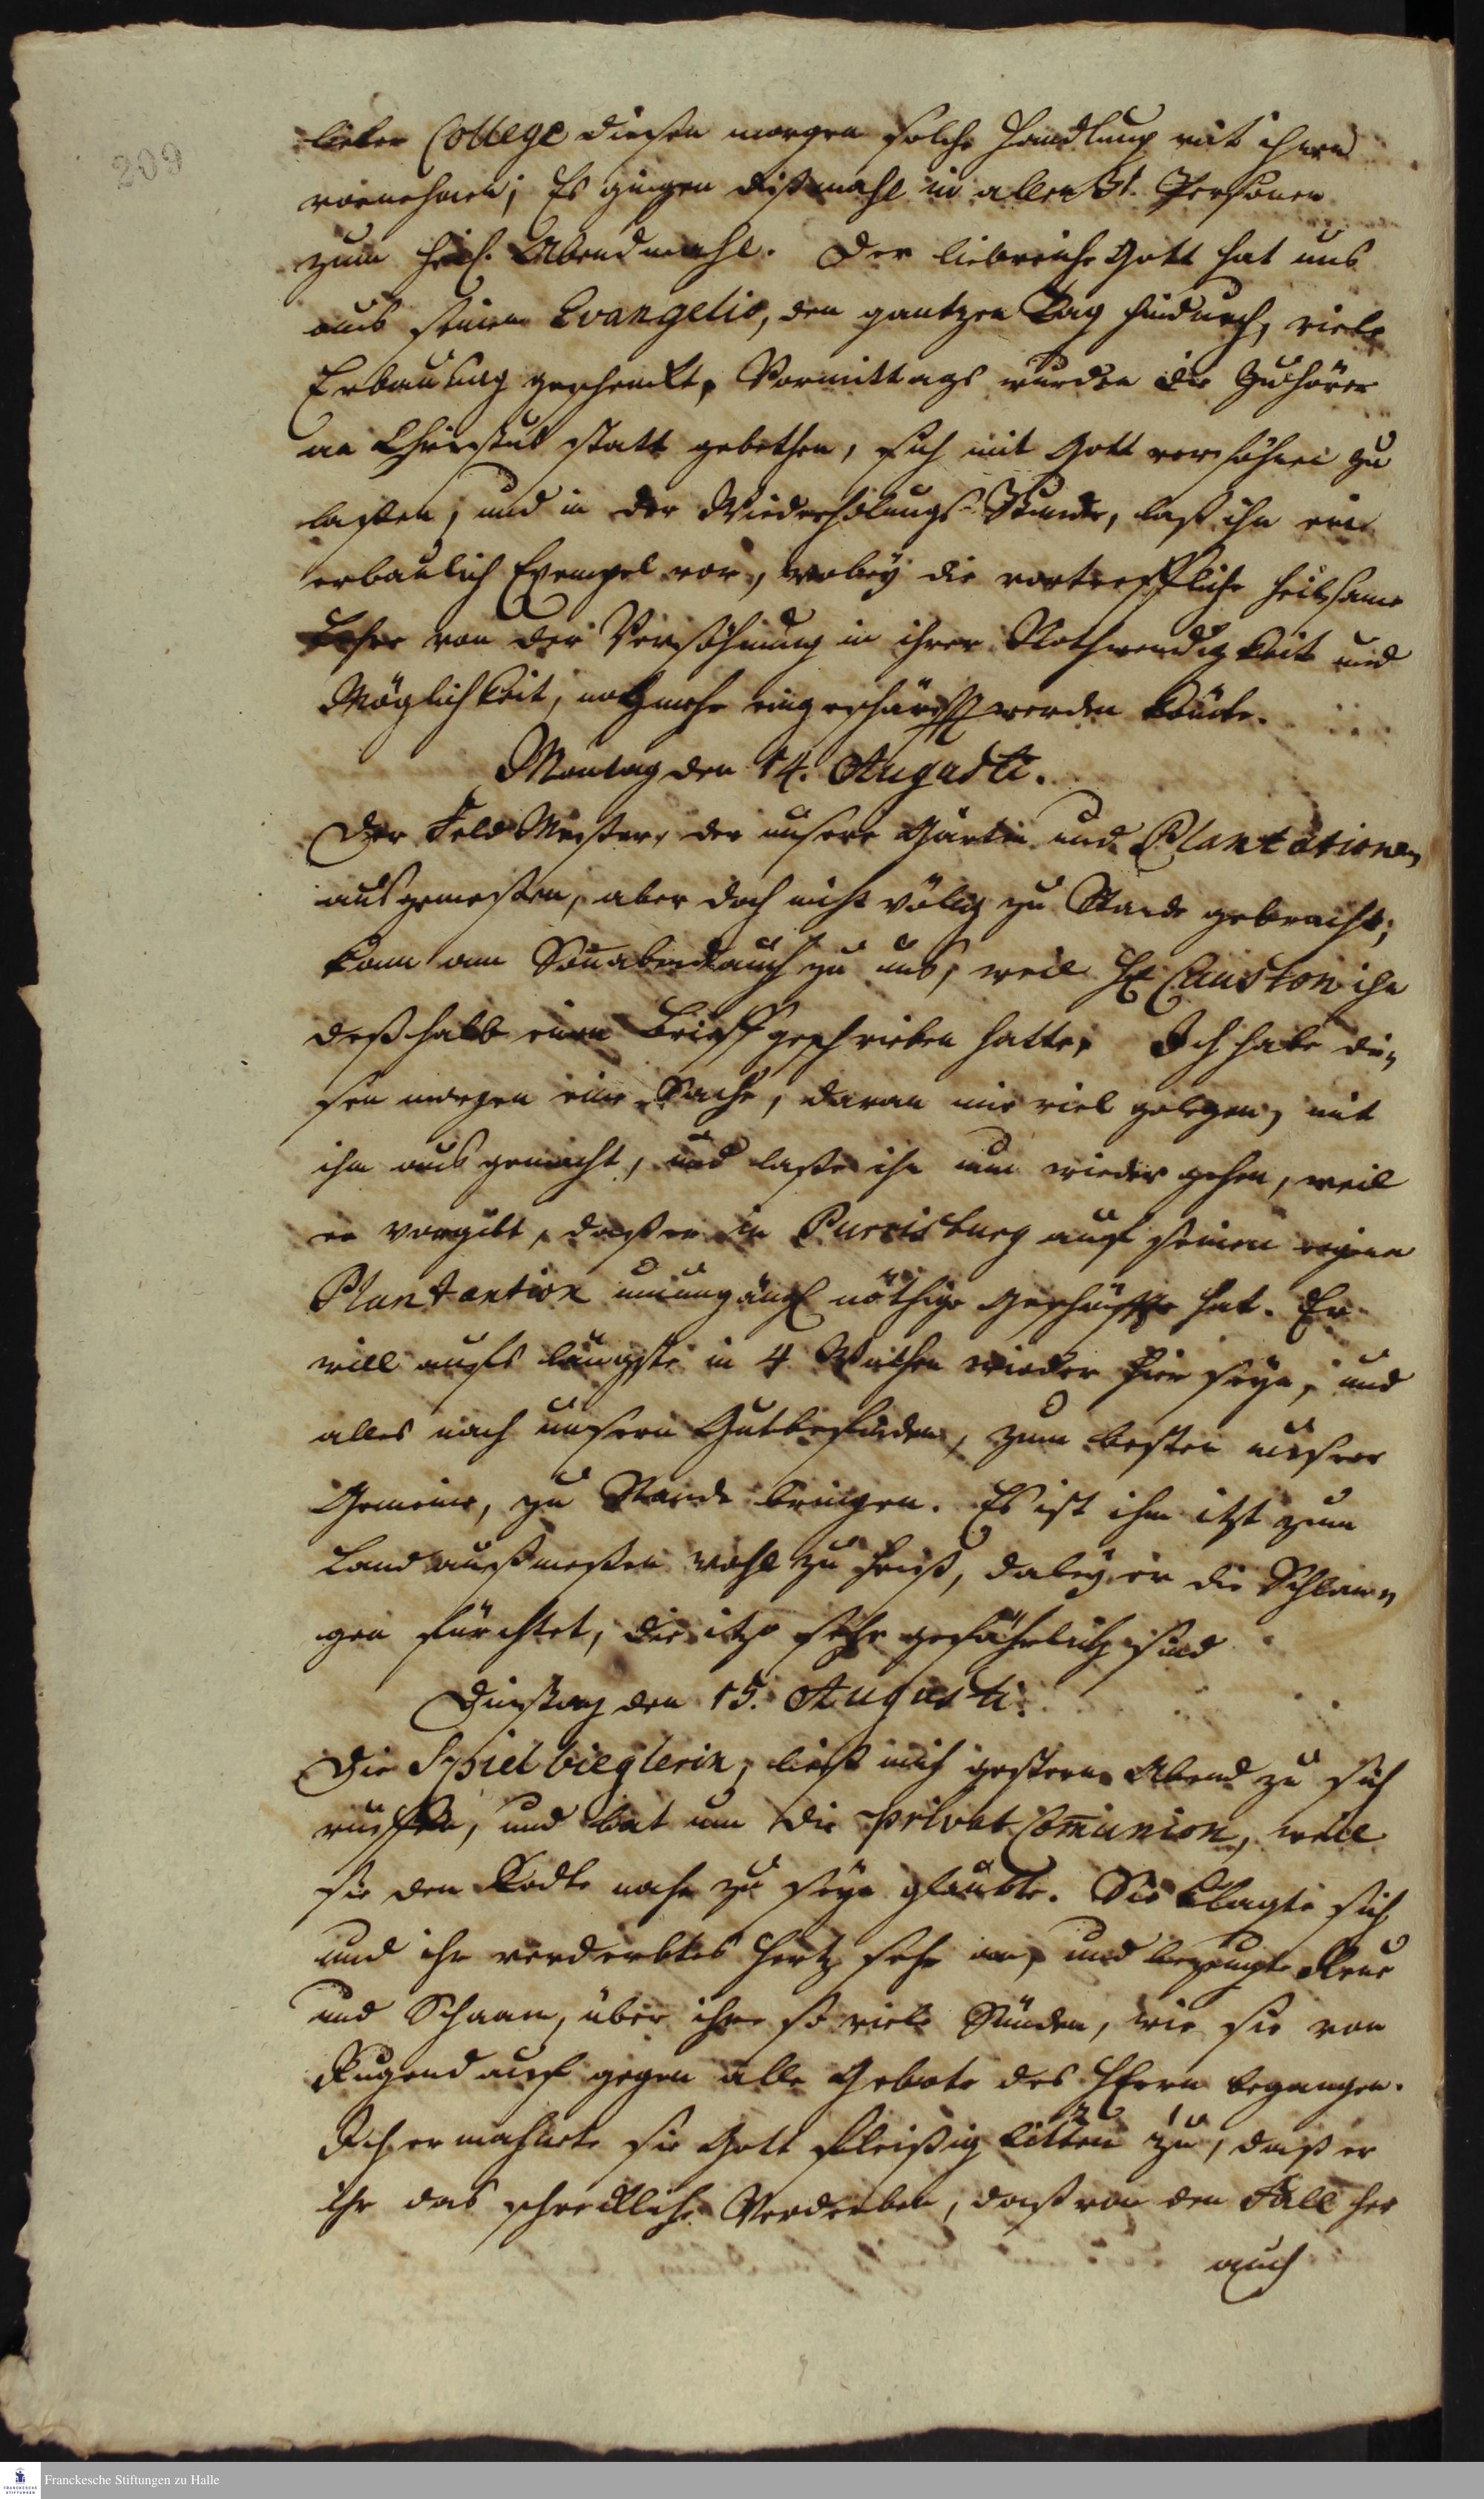 209
lieber College diesen morgen solche Handlung mit ihnen
vornehmen; Es gingen dißmahl in allen 31. Personen
zum heil. Abendmahl. Der liebreiche Gott hat uns
aus seinem Evangelio, den gantzen Tag hindurch, viele
Erbauung geschenckt, Vormittags wurden die Zuhörer
an Christus statt gebethen, sich mit Gott versöhnen zu
laßen, und in der Wiederholungs-Stunde, laß ihn ein
erbaulich Exempel vor, wobey die vortreffliche heilsame
Lehre von der Versöhnung in ihrer Nothwendigkeit und
Möglichkeit, noch mehr eingeschärfft werden konte.
Montag den 14. Augusti.
Der Feld Meßer, der unsere Gärten und Plantationen
ausgemeßen, aber doch nicht völlig zu Stande gebracht,
kam am Sonabend auch zu uns, weil H. Causton ihn
deßhalb einen Brieff geschrieben hatte, Ich habe die-
sen morgen eine Sache, daran mir viel gelegen, mit
ihm ausgemacht, und laße ihn nun wieder gehen, weil
er vorgibt, daß er in Purrisburg auf seinen eigenen
Plantantion unumgängl. nöthige Geschäffte hat. Er
will aufs längste in 4 Wochen wieder hier seyn, und
alles nach unsern Gutbefinden, zum besten unserer
Gemeine, zu Stande bringen. Es ist ihm itzt zum
Land außmeßen wohl zu heiß, dabey er die Schlan-
gen fürchtet, die itzo sehr gefährlich sind
Dienstag den 15. Augusti.
Die Spielbieglerin, ließ mich gestern Abend zu sich
ruffen, und bat um die privat Communion, weil
sie den Todte nahe zu seyn glaubte. Sie klagte sich
und ihr verderbtes Hertz sehr an, und bezeugte Reue
und Schaam, über ihre so viele Sünden, wie sie von
Jugend auf gegen alle Gebote des HErrn begangen.
Ich ermahnte sie Gott fleißig bitten zu, daß er
ihr das schreckliche Verderben, daß von den Fall her
auch
Franckesche Stiftungen zu Halle